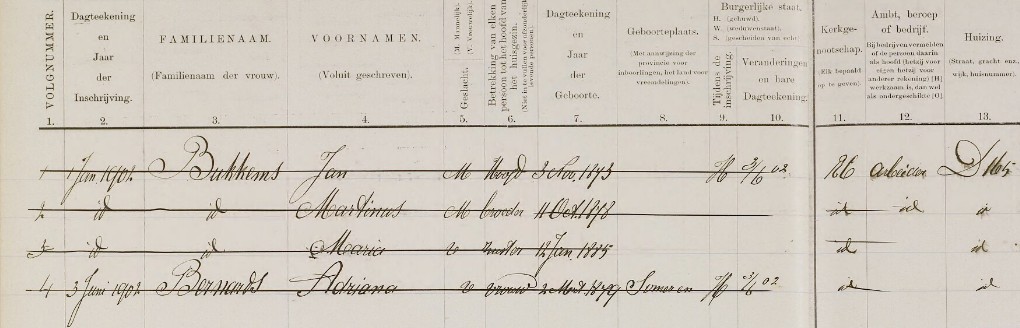 VOLGNUMMER.
Dagteekening en Jaar der Inschrijving.
FAMILIENAAM.
(Familienaam der vrouw).
VOORNAMEN.
(Voluit geschreven).
Geslacht. (M. Mannelijk.) (V. Vrouwelijk.)
Betrekking van elken persoon tot het hoofd van het huisgezin.
Dagteekening en Jaar der Geboorte.
Geboorteplaats.
(Met aanwijzing der provincie voor inboorlingen, het land voor vreemdelingen).
Burgerlijke staat.
H. (gehuwd).
W. (weduwenstaat).
S. (gescheiden van echt).
Tijdens de inschrijving.
Veranderingen en hare Dagteekening.
Kerkgenootschap.
(Elk bepaald op te geven).
Ambt, beroep of bedrijf.
Bij bedrijven vermelden of de persoon daarin als hoofd (hetzij voor eigen hetzij voor anderer rekening) [H] werkzaam is, dan wel als ondergeschikte [O].
Huizing.
(Straat, gracht enz., wijk, huisnummer).
1. 2. 3. 4. 5. 6. 7. 8. 9. 10. 11. 12. 13.
1 1 Jan. 1902 Bukkems Jan M Hoofd 3 Nov. 1873 H 3/6 02 RK arbeider
2 id id Martinus M broeder 11 Oct. 1878 id id id
3 id id Maria v zuster 12 Jan 1885 id id
4 3 Juni 1902 Bernards Adriana v vrouw 2 Mrt. 1879 Someren H 3/6 02 id id